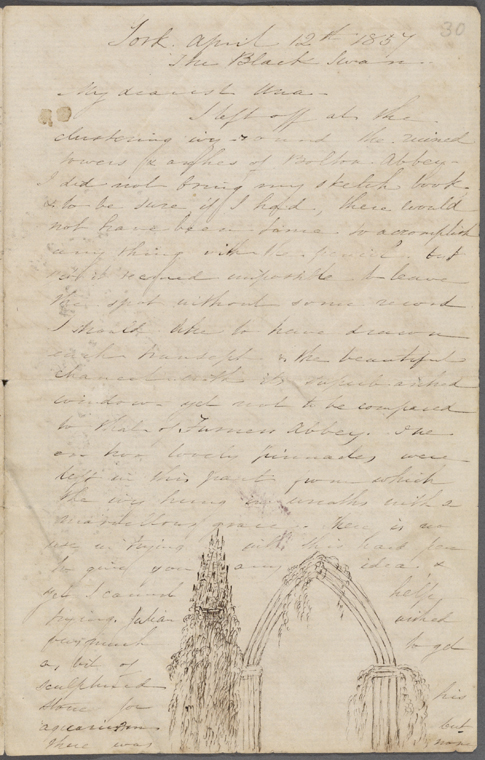 30
York. April 12th 1857
The Black Swan.
My dearest Una.
I left off at the
clustering ivy round the ruined
towers & arches of Bolton Abbey.
I did not bring my sketch book
& to be sure if I had, there would
not have been time to accomplish
any thing with the pencil, but
yet it seemed impossible to leave
the spot without some record
I should like to have drawn
each transept & the beautiful
chancel with its superb arched
window yet not to be compared
to that of Furness Abbey. One
or two lovely pinnacles were
left in this part from which
the ivy hung in wreaths with a
marvellous grace. There is no
use in trying with this hard pen
to give you any idea &
yet I cannot help
trying. Julian wished
very much to get
a bit of
sculptured
stone for his
aquarium but
there was none